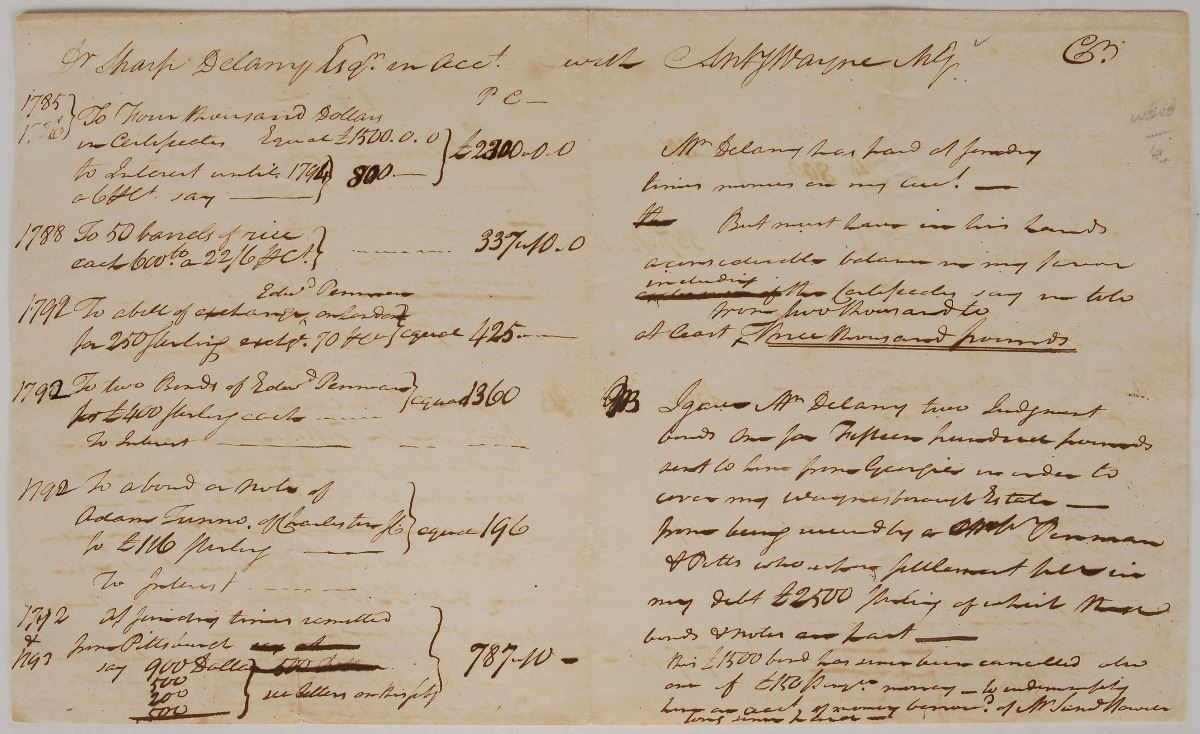 Dr Sharp Delany Esqr. in acct. with Anty Wayne Cr.
P C —
1785
To Four thousand Dollars
in Certificates Equal £1500.0.0
to Interest until 1794 800 — £2300.0.0
a 6 ℔ Ct. say —
1788 To 50 barrels of rice
each 600 lb a 22/6 ℔ Ct. — 337.10.0
Edwd. Penman
1792 To a bill of exchange on London
for 250 sterling exchg. 70 ℔ Ct equal 425. —
1792 To two Bonds of Edwd Penman
for £400 sterling each equal 1360
To Interest —
1792 To a bond or note of
Adam Tunno. of Charleston SC equal 196
to £116 sterling —
To Interest —
1792 At sundry times remitted
& from Pittsburgh
1793 say 900 Dollars 787.10 —
500
200 see letters on this subj
500
Mr Delany has paid at sundry
times monies on my acct. —
But must have in his hands
a considerable balance in my favor
including
the Certificates say in toto
from two thousand to
at least three thousand pounds
NB I gave Mr Delany two Judgment
bonds One for Fifteen hundred pounds
sent to him from Georgia in order to
cover my Waynesborough Estate —
from being seized by a Penman
& Potts who upon settlement fell in
my debt £2500 sterling of which these
bonds & notes are part —
this £1500 bond has since been cancelled also
one of £150 money — to indemnify
him on acct. of money borrowd. of Mr
long since paid —